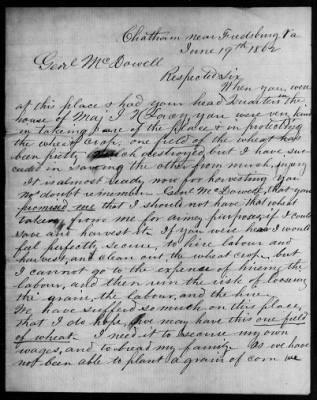 Chatham near Fredsburg Va
June 19th 1862
Genl McDowell
Respected Sir
When you were
at this place & had your head Quarters in the
house of Maj J H Lacy, you were very kind
in taking care of the place & in protecting
the wheat crop. one field of the wheat has
been pretty much destroyed, but I have suc
ceded in saving the other from much injury
It is almost ready now for harvesting you
no doubt remember Genl McDowell, that you
promised me that I should not have that wheat
taken from me for army purposes, if I could
save and harvest it. If you were here I would
feel perfectly secure, to hire labour and
harvest, and clean out the wheat crop, but
I cannot go to the expense of hireing the
labour, and then run the risk of loosing
the grain, the labour, and the hire
We have suffered so much on this place
that I do hope, we may have this one field
of wheat. I need it to secure my own
wages, and to bread my family as we have
not been able to plant a grain of corn we